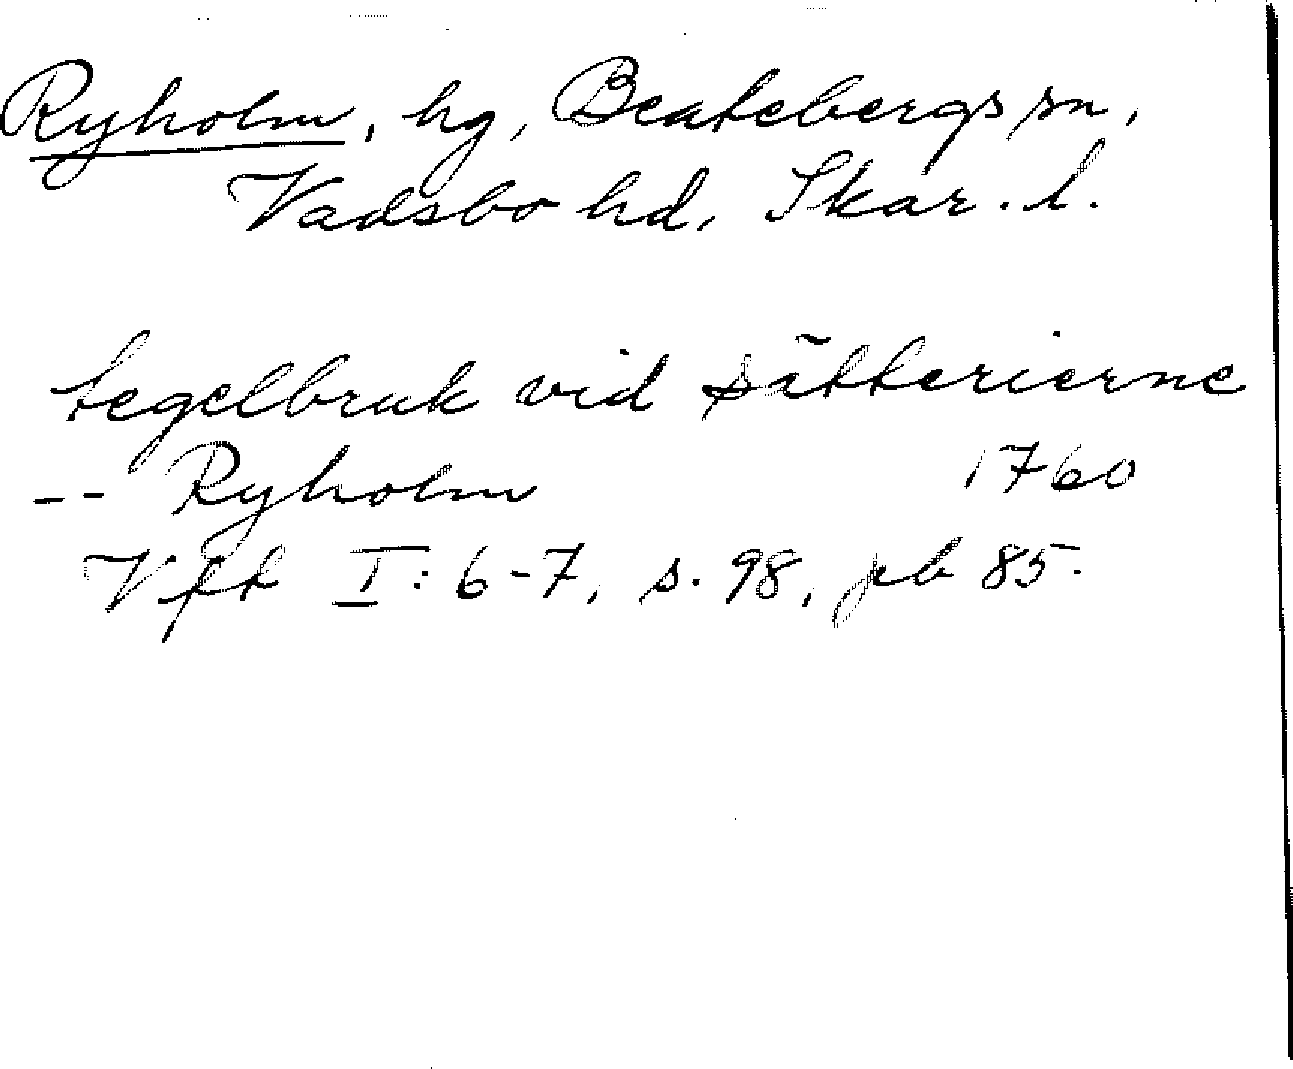 Ryholm, hg, Beatebergs sn,
Vadsbo hd, Skar. l.
tegelbruk vid sätterierne
-- Ryholm 1760
Vft I: 6-7, s. 98, jeb 85.